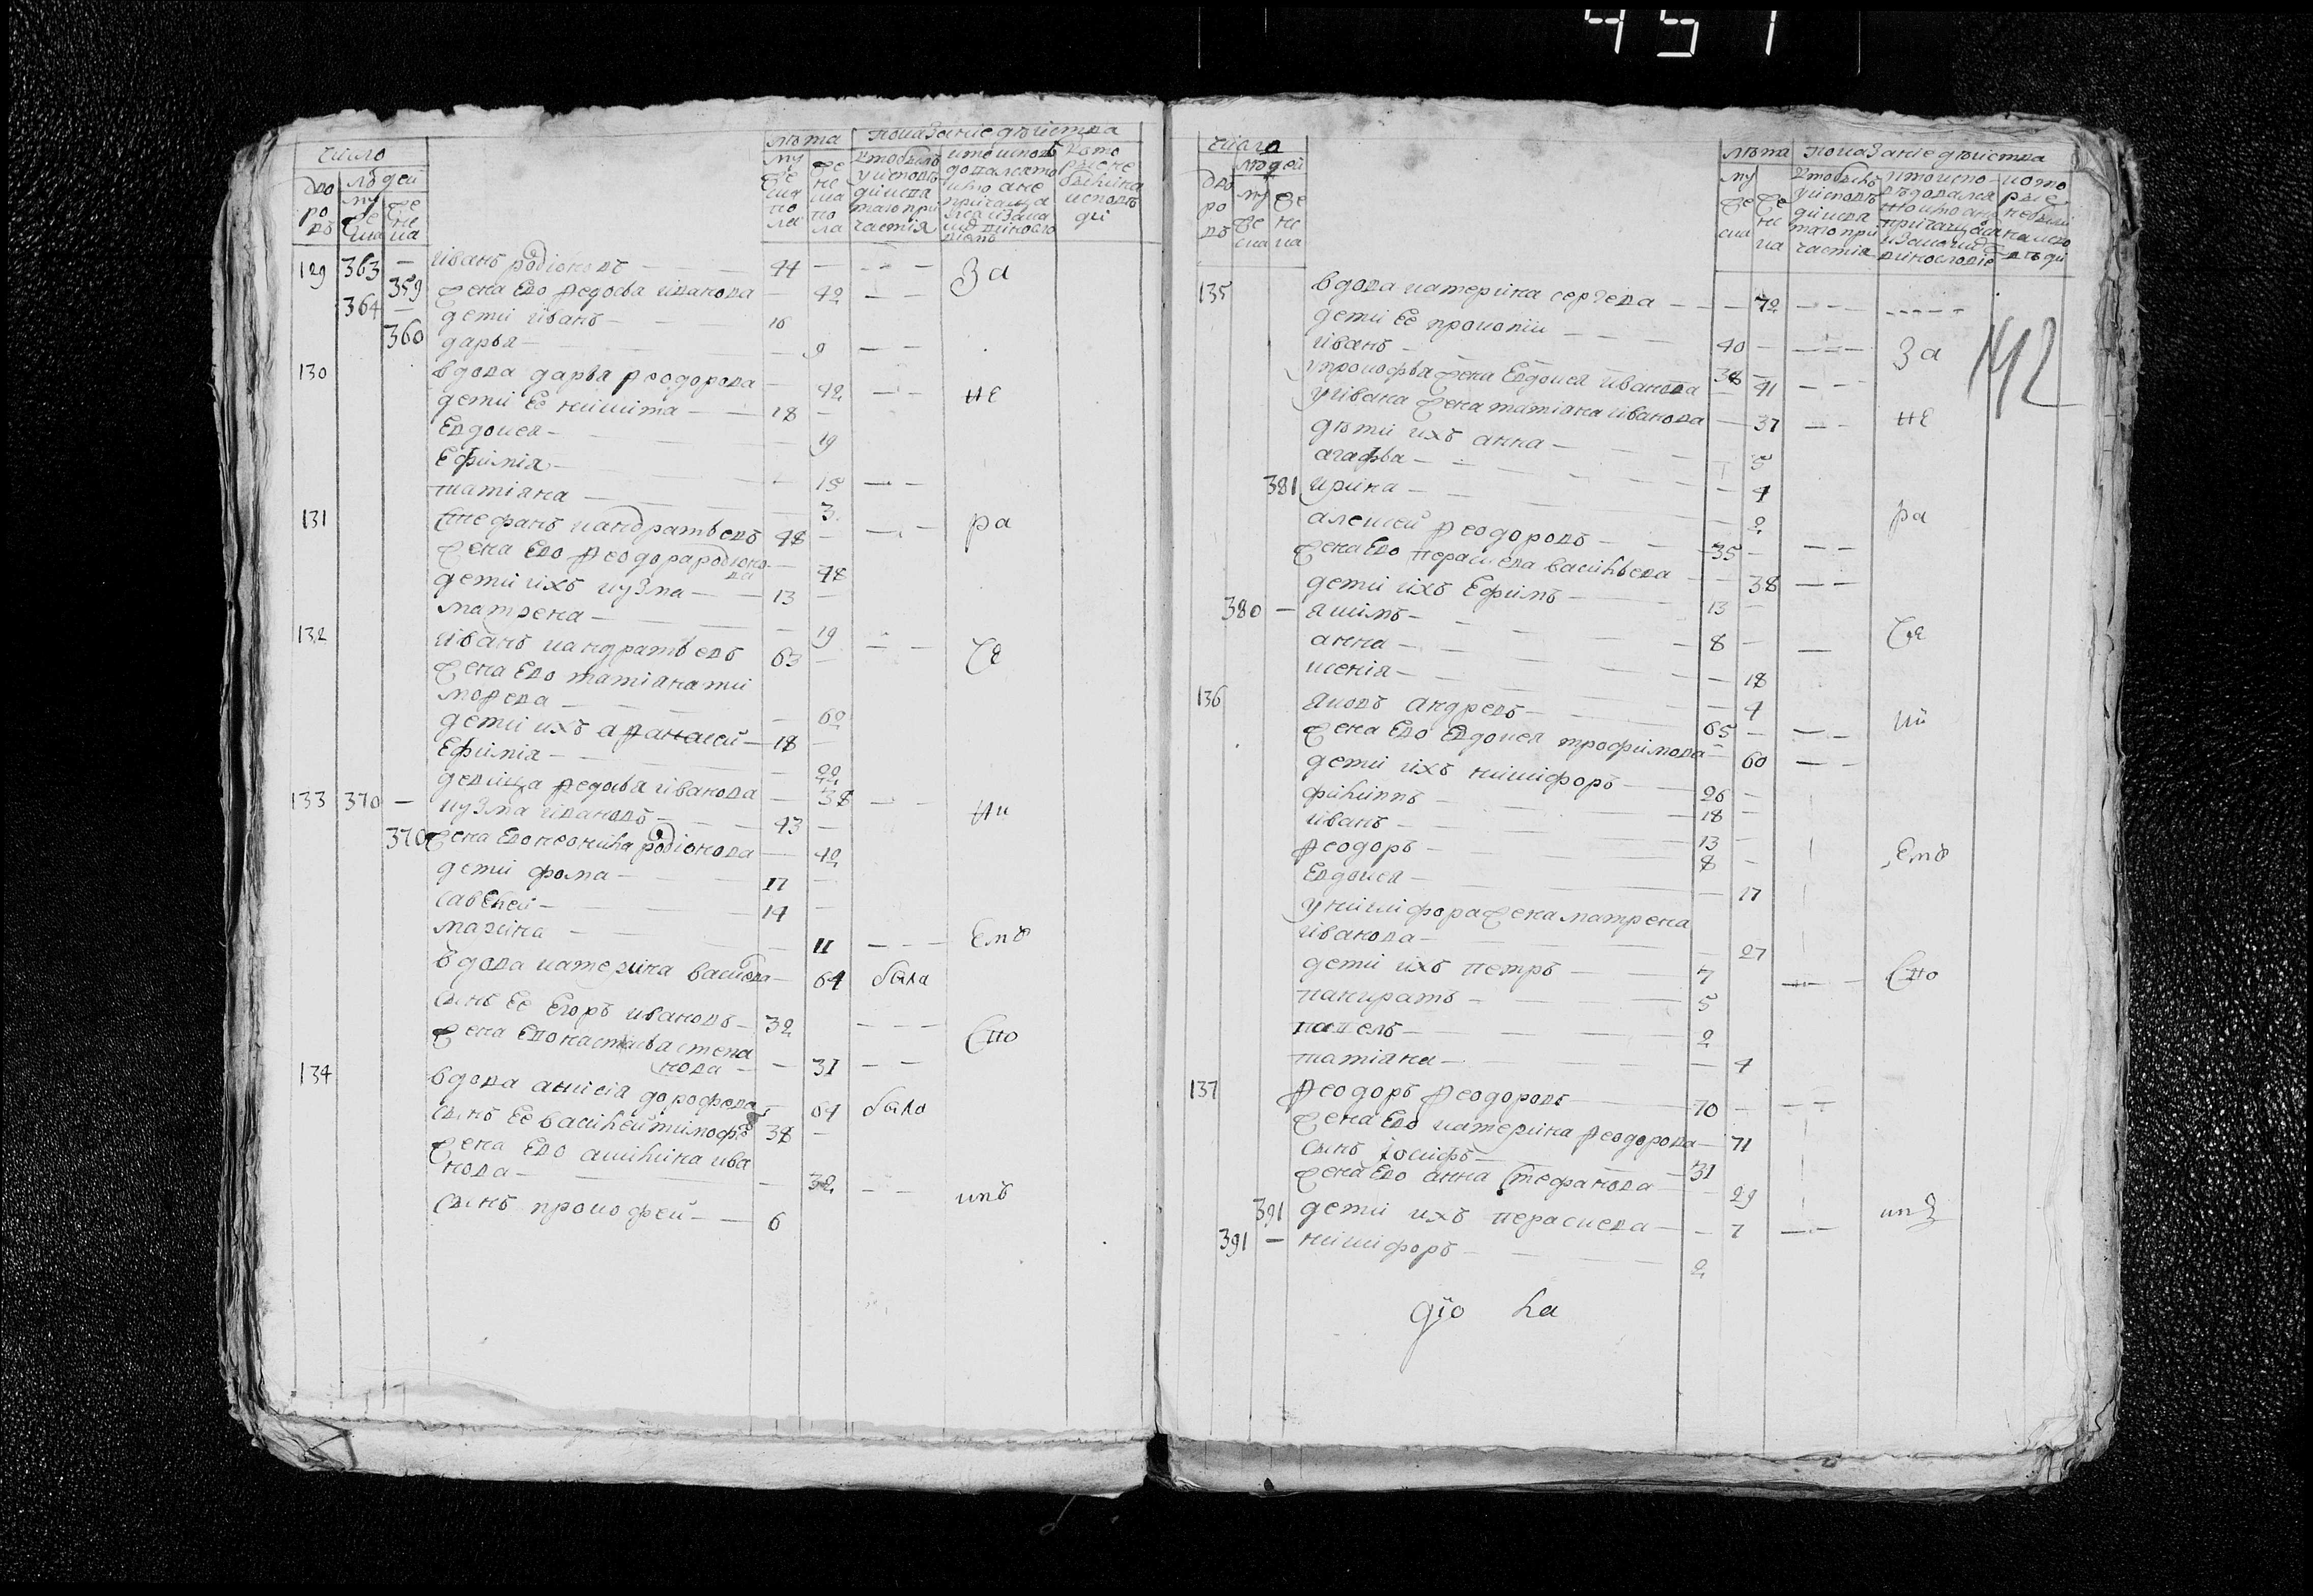 451
число
людей
дворовъ
мужеска
женска
лѣта
показание дѣйства
129 363 — иванъ родионовъ — 44 — За
359 жена ево федосья иванова — 42
364 — дети иванъ — 16
360 дарья — 9
130 вдова дарья феодорова — 42 — не
дети ее никита — 18
евдокея — 19
ефимія — 15
татіяна — 3
131 стефанъ кандратьевъ 48 — ра
жена ево феодора родионова — 48
дети ихъ кузма — 13
матрена — 19
132 иванъ кандратьевъ 63 — же
жена ево татіяна ти
мофева — 60
дети ихъ афанасей — 18
ефимія — 22
девица федосья иванова — 38
133 370 — кузма ивановъ — 43 — ни
370 жена ево неонила родионова — 40
дети фома — 17
савелей — 14
марина — 11 — емъ
вдова катерина васильева — 64 была
сынъ ее егоръ ивановъ — 32
жена ево настасья степа
нова — 31 — сво
134 вдова анисія дорофева — 64 была
сынъ ее василей тимофѣе 38 —
жена ево акилина ива
нова — 32
сынъ прокофей — 6 имъ
число
людей
дворовъ
мужеска
женска
лѣта
показание дѣйства
135 вдова катерина сергева — 72
дети ее прокопіи — 40 — За
иванъ — 38
у прокофья жена евдокея иванова — 41
у ивана жена татіяна иванова — 37 — не
дѣти ихъ анна — 5
агафья — 4
381 ирина — 2 ра
алексей феодоровъ — 35 —
жена ево параскева васильева — 38
дети ихъ ефимъ — 13
380 — якимъ — 8 же
анна — 18
ксенія — 4
136 яковъ андревъ — 65 — ни
жена ево евдокея трофимова — 60
дети ихъ никифоръ — 26
филиппъ — 18
иванъ — 13
феодоръ — 8 емъ
евдокея — 17
у никифора жена матрена
иванова — 27
дети ихъ петръ — 7 — сво
панкратъ — 5
павелъ — 2
татіяна — 4
137 феодоръ феодоровъ — 70
жена ево катерина феодорова — 71
сынъ іосифъ — 31
жена ево анна стефанова — 29
391 дети ихъ параскева — 7
391 — никифоръ — 2
142